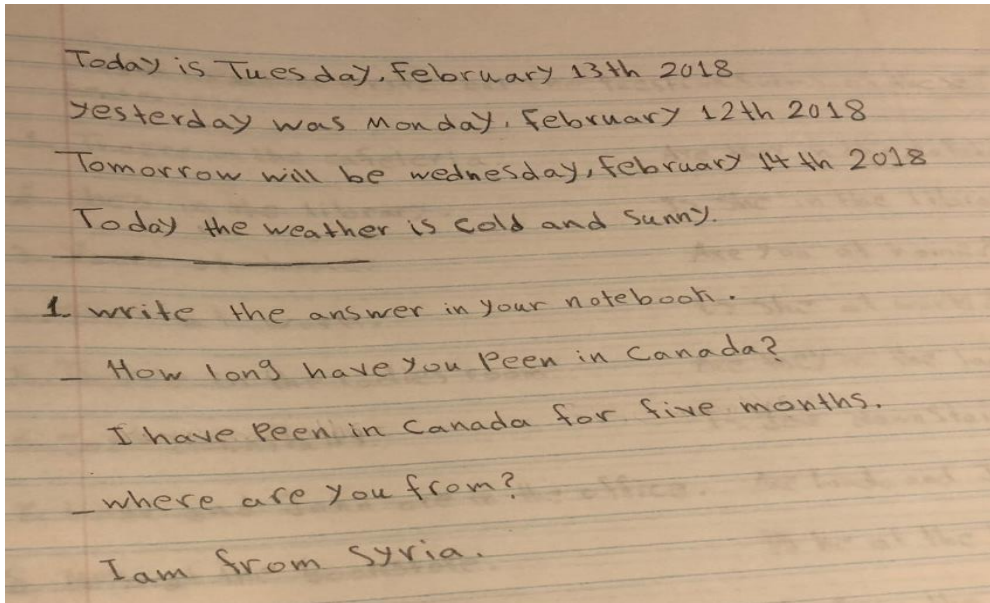 Today is Tuesday, February 13th 2018
yesterday was Monday, February 12th 2018
Tomorrow will be wednesday, february 14th 2018
Today the weather is cold and sunny.
1 write the answer in your notebook.
_ How long have you Peen in Canada?
I have Peen in Canada for five months.
_ where are you from?
I am from Syria.